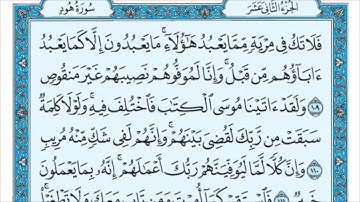 الجزء الثاني عشر
سورة هود
فَلَا تَكُ فِى مِرْيَةٍ مِّمَّا يَعْبُدُ هَٰٓؤُلَآءِ ۚ مَا يَعْبُدُونَ إِلَّا كَمَا يَعْبُدُ
ءَابَآؤُهُم مِّن قَبْلُ ۚ وَإِنَّا لَمُوَفُّوهُمْ نَصِيبَهُمْ غَيْرَ مَنقُوصٍ
١٠٩ وَلَقَدْ ءَاتَيْنَا مُوسَى ٱلْكِتَٰبَ فَٱخْتُلِفَ فِيهِ ۚ وَلَوْلَا كَلِمَةٌ
سَبَقَتْ مِن رَّبِّكَ لَقُضِىَ بَيْنَهُمْ ۚ وَإِنَّهُمْ لَفِى شَكٍّ مِّنْهُ مُرِيبٍ
١١٠ وَإِنَّ كُلًّا لَّمَّا لَيُوَفِّيَنَّهُمْ رَبُّكَ أَعْمَٰلَهُمْ ۚ إِنَّهُۥ بِمَا يَعْمَلُونَ
خَبِيرٌ ١١١ فَٱسْتَقِمْ كَمَآ أُمِرْتَ وَمَن تَابَ مَعَكَ وَلَا تَطْغَوْا۟ ۚ